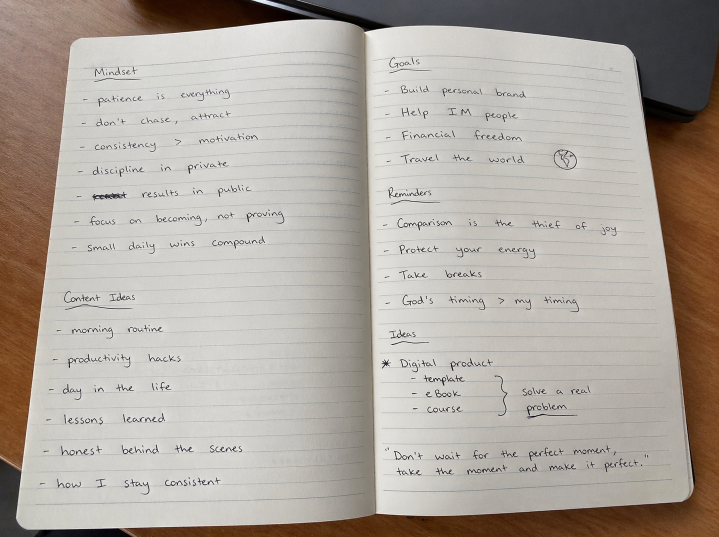 Mindset
- patience is everything
- don't chase, attract
- consistency > motivation
- discipline in private
- results in public
- focus on becoming, not proving
- small daily wins compound
Content Ideas
- morning routine
- productivity hacks
- day in the life
- lessons learned
- honest behind the scenes
- how I stay consistent
Goals
- Build personal brand
- Help IM people
- Financial freedom
- Travel the world
Reminders
- Comparison is the thief of joy
- Protect your energy
- Take breaks
- God's timing > my timing
Ideas
* Digital product
- template
- eBook
- course
solve a real
problem
"Don't wait for the perfect moment,
take the moment and make it perfect."